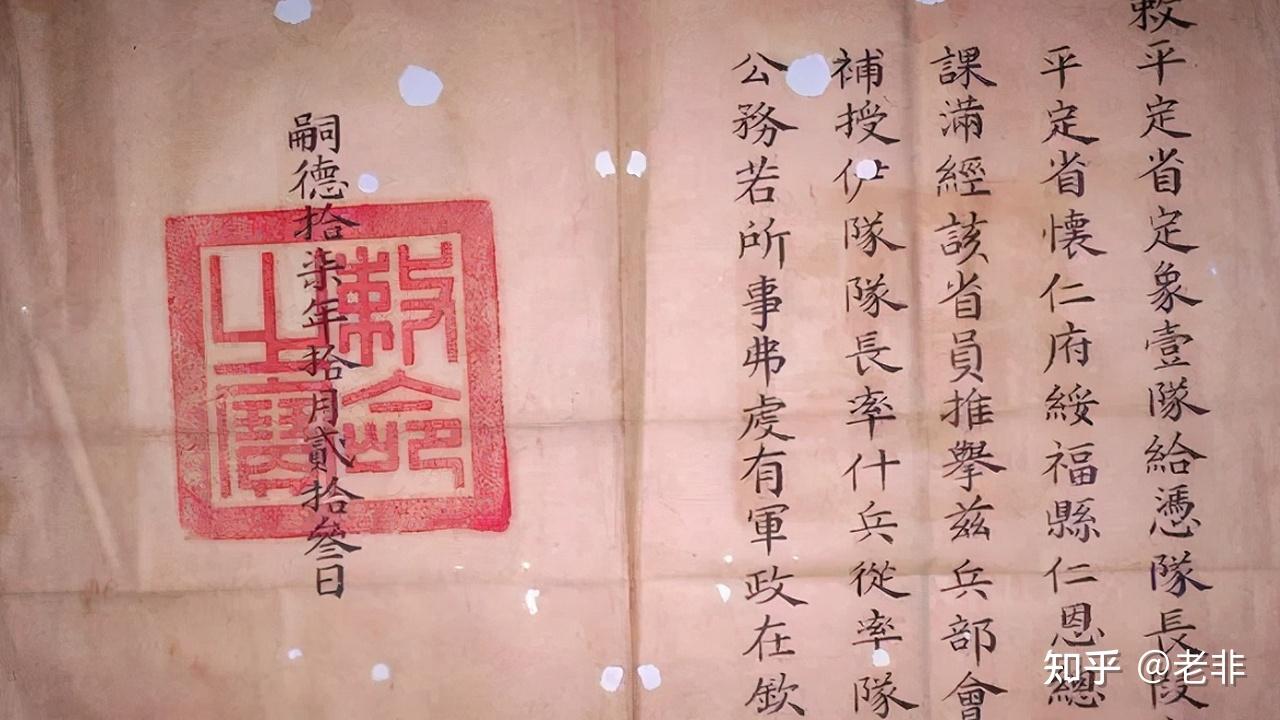 敕平定省定象壹隊給憑隊長段
平定省懷仁府綏福縣仁恩總
課滿經該省員推舉兹兵部會
補授伊隊隊長率什兵從率隊
公務若所事弗虔有軍政在欽
嗣德拾柒年拾月貳拾叄日
敕命之寶
知乎 @老非